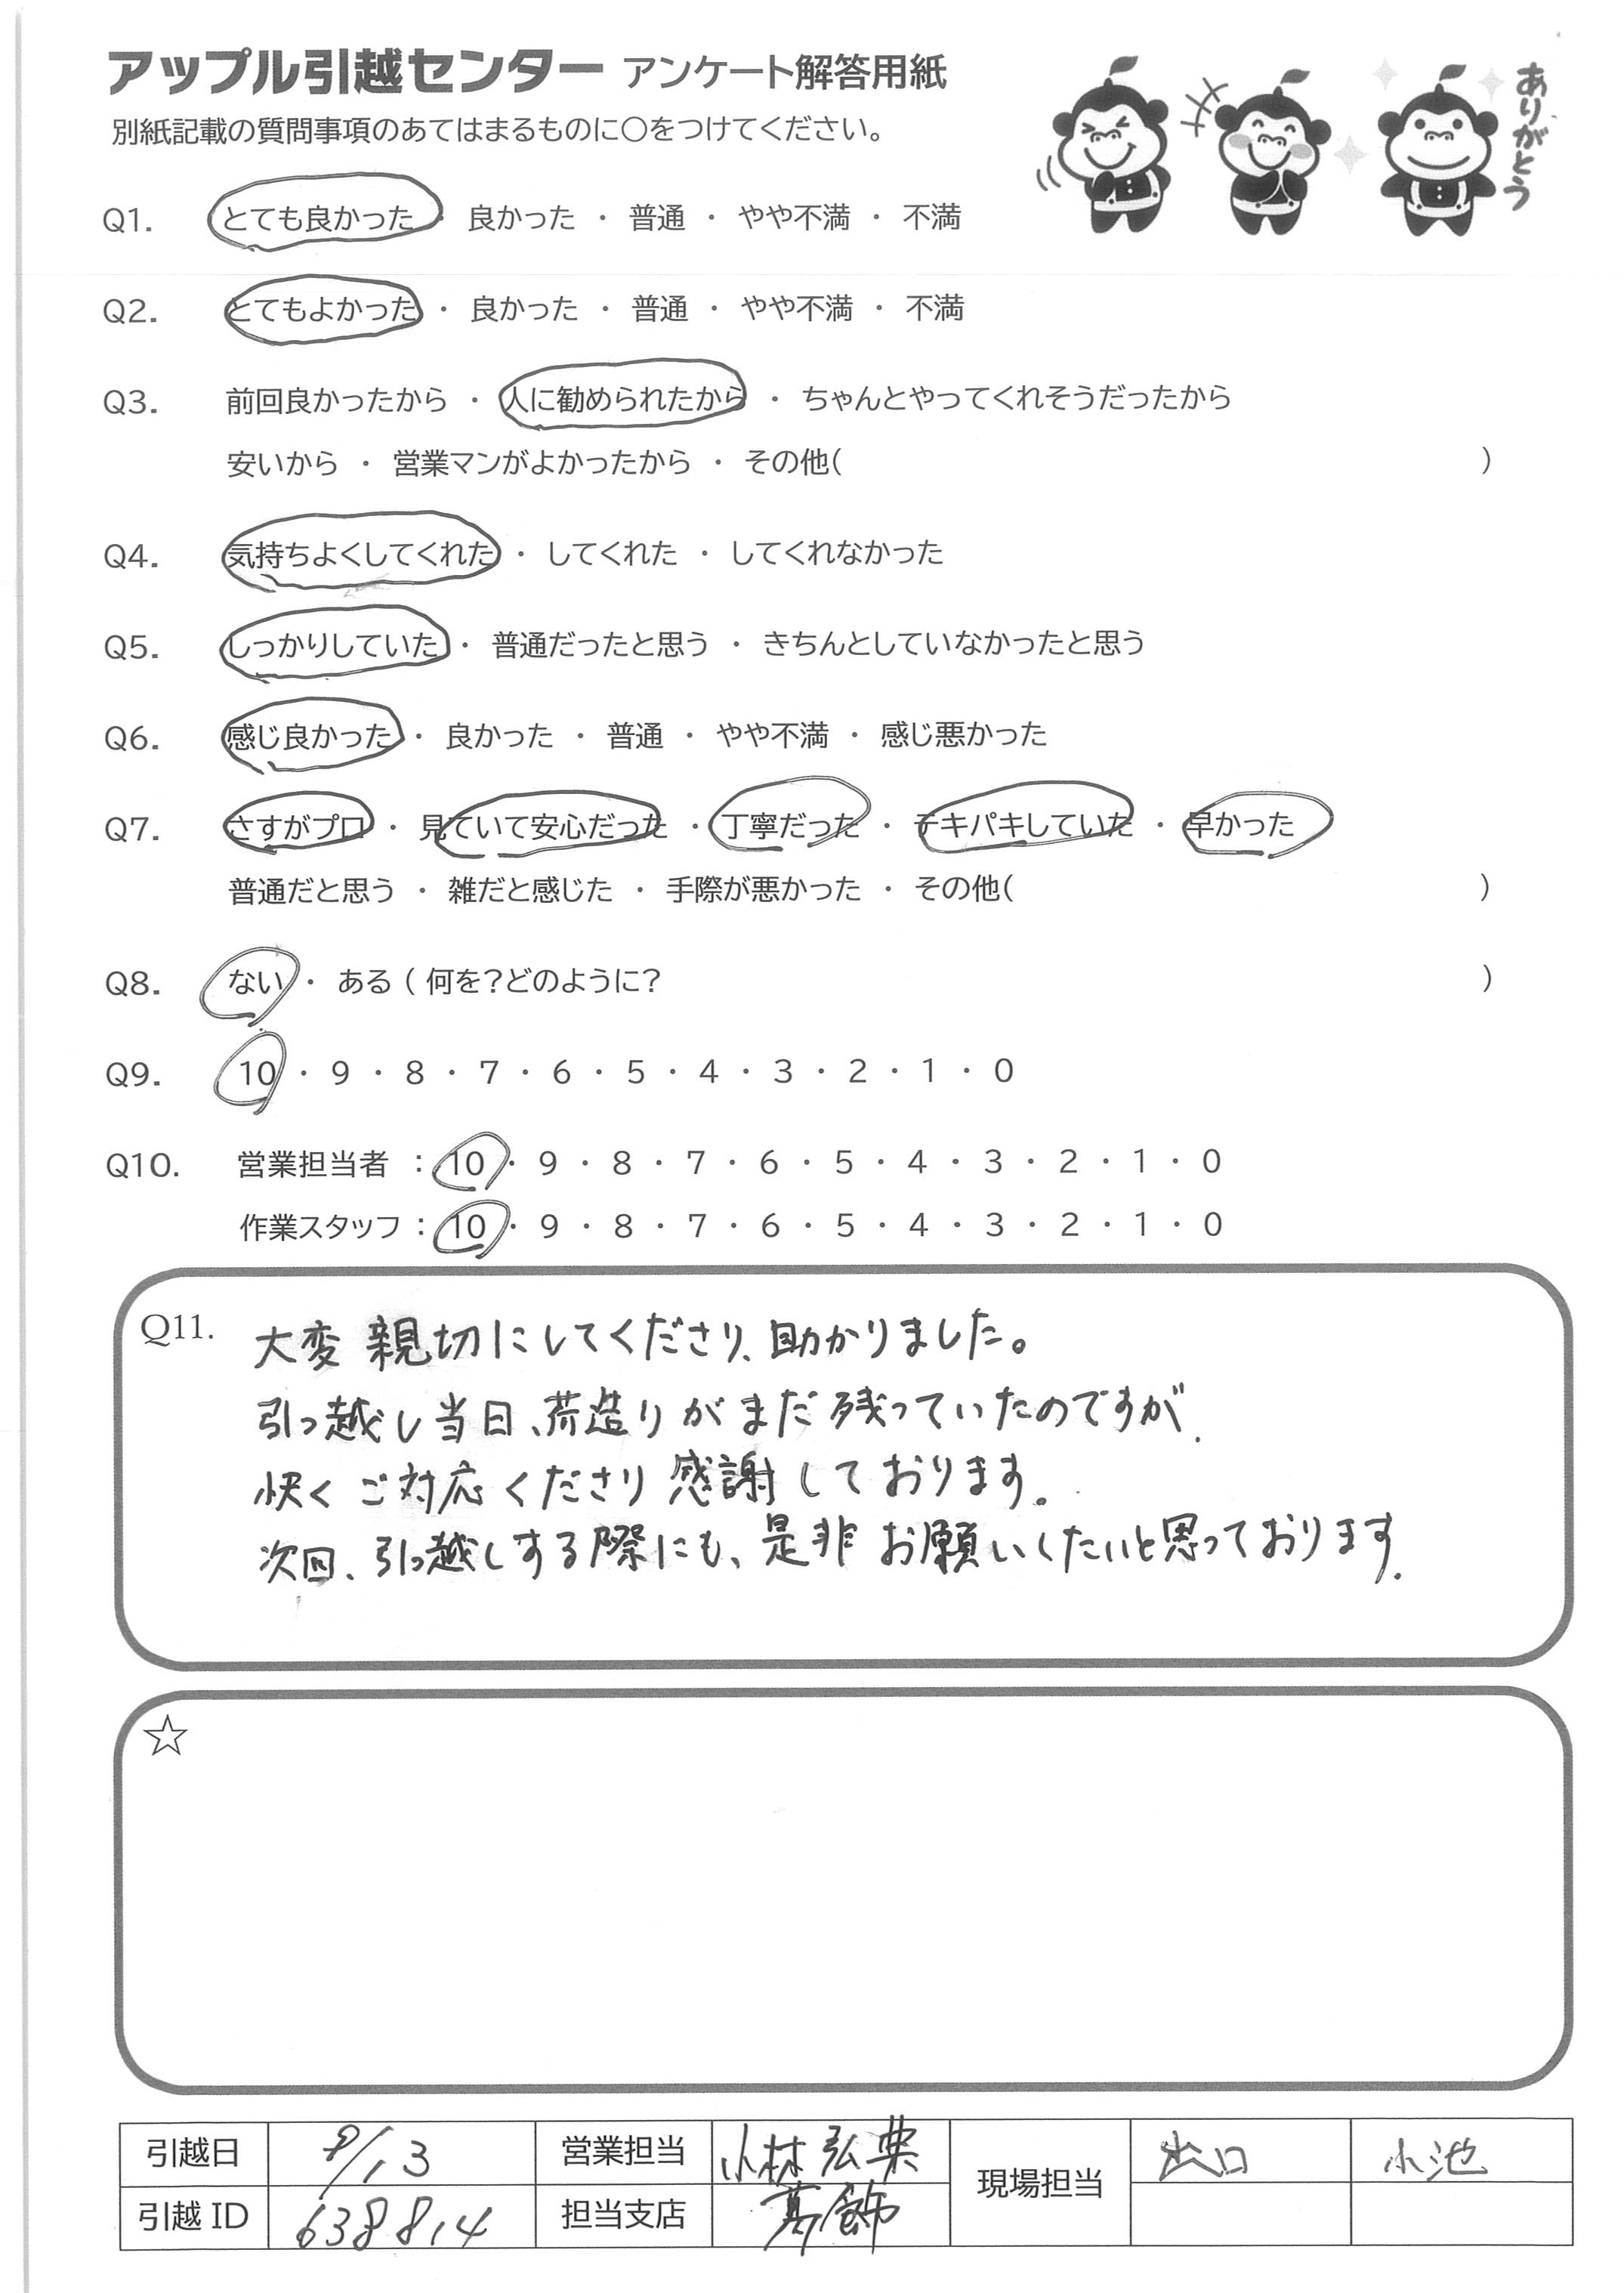 アップル引越センター アンケート解答用紙
ありがとう
別紙記載の質問事項のあてはまるものに○をつけてください。
Q1. とても良かった ・ 良かった ・ 普通 ・ やや不満 ・ 不満
Q2. とてもよかった ・ 良かった ・ 普通 ・ やや不満 ・ 不満
Q3. 前回良かったから ・ 人に勧められたから ・ ちゃんとやってくれそうだったから
安いから ・ 営業マンがよかったから ・ その他( )
Q4. 気持ちよくしてくれた ・ してくれた ・ してくれなかった
Q5. しっかりしていた ・ 普通だったと思う ・ きちんとしていなかったと思う
Q6. 感じ良かった ・ 良かった ・ 普通 ・ やや不満 ・ 感じ悪かった
Q7. さすがプロ ・ 見ていて安心だった ・ 丁寧だった ・ テキパキしていた ・ 早かった
普通だと思う ・ 雑だと感じた ・ 手際が悪かった ・ その他( )
Q8. ない ・ ある ( 何を?どのように? )
Q9. 10 ・ 9 ・ 8 ・ 7 ・ 6 ・ 5 ・ 4 ・ 3 ・ 2 ・ 1 ・ 0
Q10. 営業担当者 : 10 ・ 9 ・ 8 ・ 7 ・ 6 ・ 5 ・ 4 ・ 3 ・ 2 ・ 1 ・ 0
作業スタッフ : 10 ・ 9 ・ 8 ・ 7 ・ 6 ・ 5 ・ 4 ・ 3 ・ 2 ・ 1 ・ 0
Q11. 大変 親切にしてくださり、助かりました。
引っ越し当日、荷造りがまだ残っていたのですが、
快くご対応くださり感謝しております。
次回、引っ越しする際にも、是非お願いしたいと思っております。
☆
引越日 /13 営業担当 小林弘典 現場担当 出口 小池
引越ID 638814 担当支店 葛飾